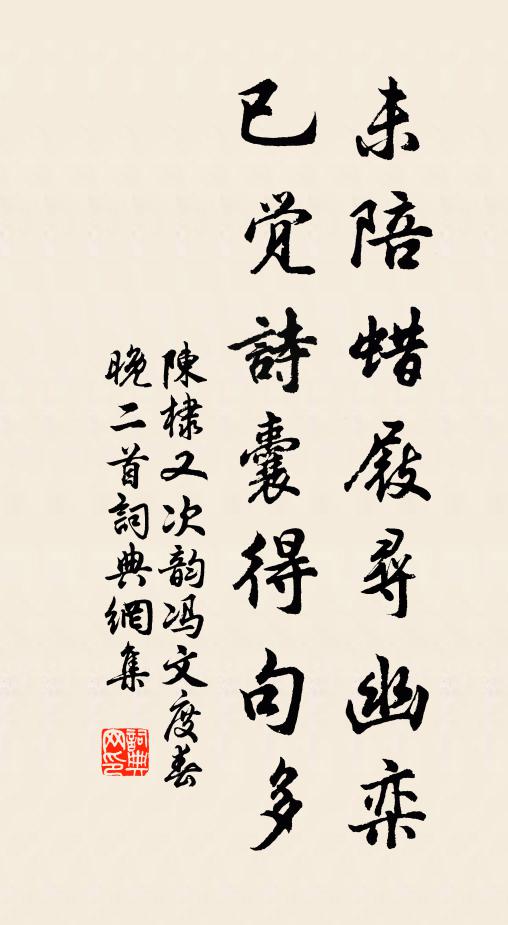 未陪蜡屐尋幽栾
已觉詩囊得句多
陳棣又次韵冯文度春
晚二首詞典網集
詞典
网印